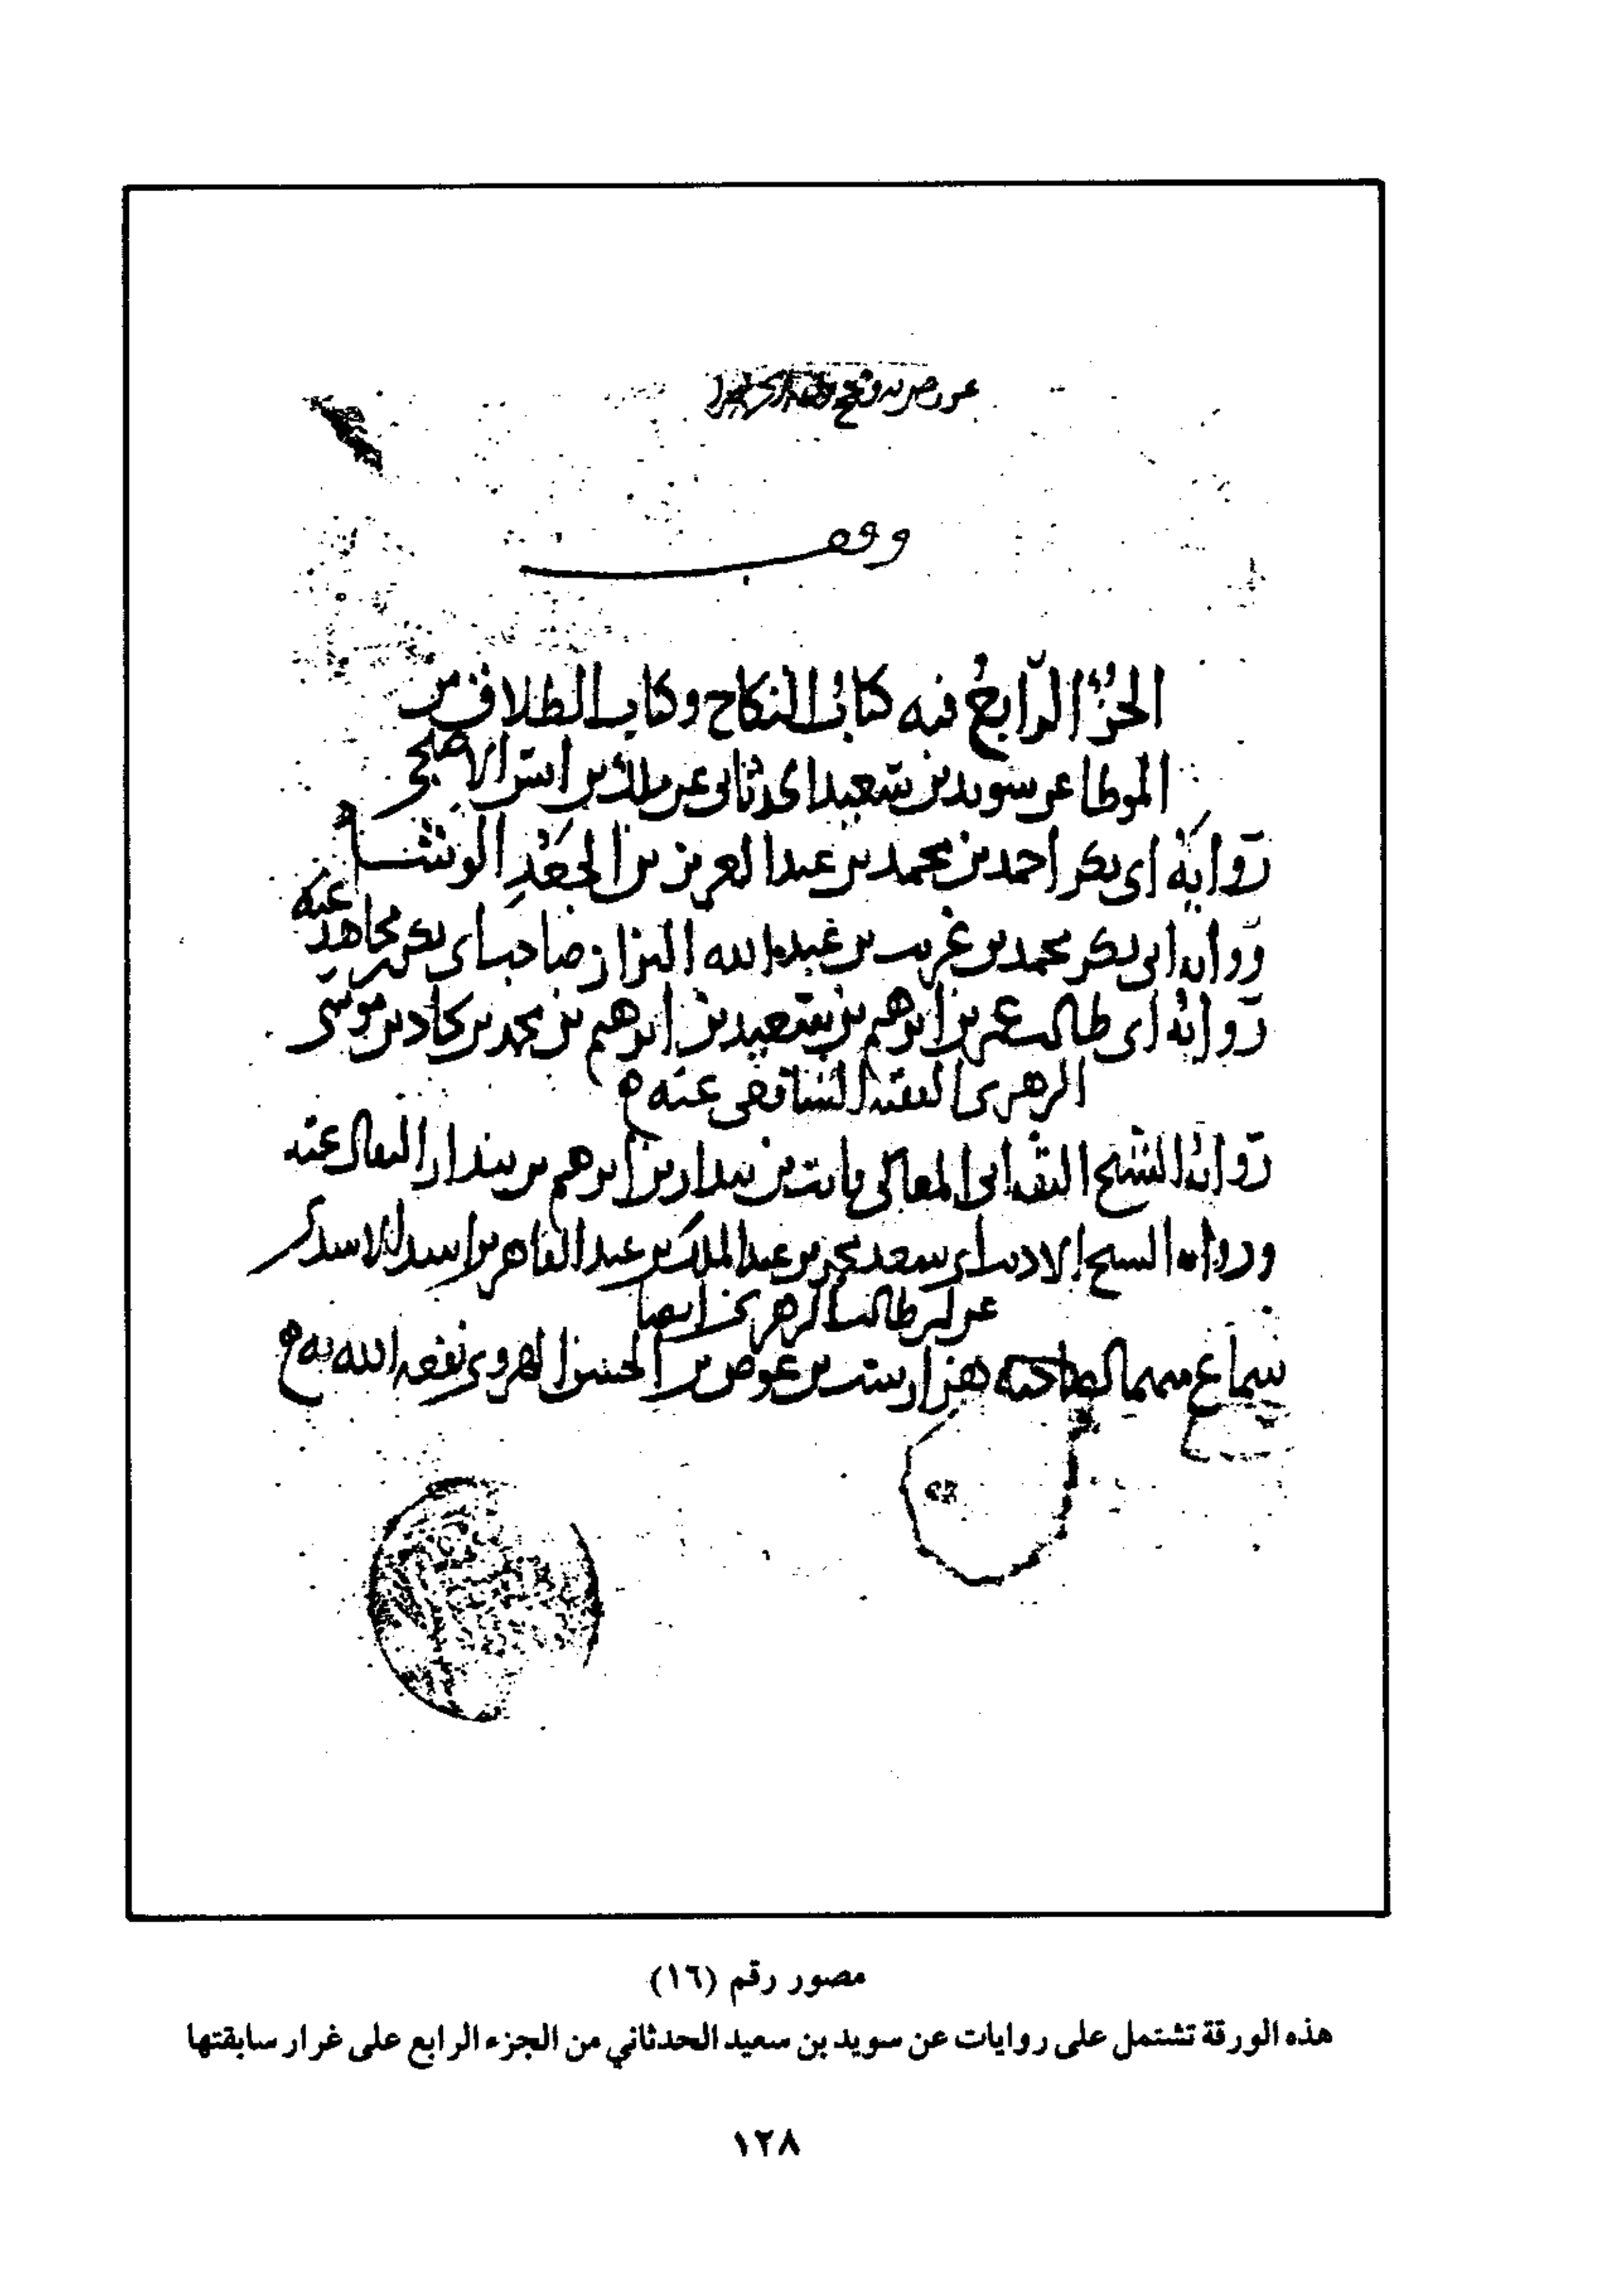 وقف
الجزء الرابع فيه كتاب النكاح وكتاب الطلاق من
الموطا عن سويد بن سعيد الحدثاني عن ملك بن انس الاصبحي
رواية ابي بكر احمد بن محمد بن عبد العزيز بن الجعد الوشا
عنه
رواية ابي بكر محمد بن غريب بن عبد الله البزاز صاحب ابي بكر بن مجاهد
رواية ابي طالب عمر بن ابرهيم بن سعيد بن ابرهيم بن محمد بن بجاد بن موسى
الزهري الفقيه الشافعي عنه
رواية الشيخ الثقة ابي المعالي ثابت بن بندار بن ابرهيم بن بندار البقال عنه
ورواية الشيخ ابي سعد محمد بن عبد الملك بن عبد القاهر بن اسد الاسدي
عن ابي طالب الزهري ايضا
سماع لصاحبه هزارست بن عوض بن الحسن الهروي نفعه الله به
مصور رقم (١٦)
هذه الورقة تشتمل على روايات عن سويد بن سعيد الحدثاني من الجزء الرابع على غرار سابقتها
١٢٨